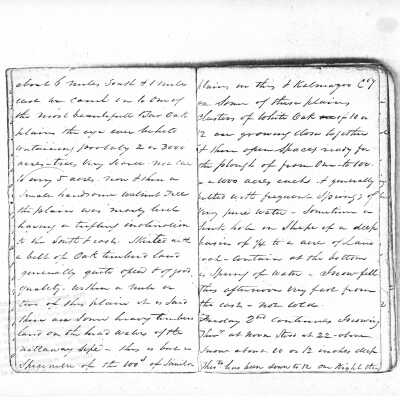 about 6 miles South & 1 miles
east we came on to one of
the most beautifull Bur Oak
plains the eye ever beheld
containing probably 2 or 3000
acres - trees very scarce not
to every 5 acres now & then a
small handsome Walnut Tree
the plain was mostly level
having a trifling inclination
to the South & east. Skirted with
a belt of Oak timbered land
generally quite open & of good
quality. Within a mile or
two of this plain it is said
there are some heavy timbered
land on the head waters of the
this is but a
Specimen of the 100d of Similar
plains on this & Kalmazoo Cy
on Some of these plains
clusters of White Oak 10 or
12 are growing close together
& then open Spaces ready for
the plough of from One to 100
a 1000 acres each. & generally
with frequent Springs of
very pure water - Sometimes a
Sunk hole in Shape of a deep
basin of 1/4 to a acre of Land
contains at the bottom
a Spring of Water - Snow fell
this afternoon very fast from
the east - not cold
Thursday 2nd continues Snowing
Thr at noon Stood at 22 above
Snow about 10 or 12 inches deep
Thr has been down to 12 on Night